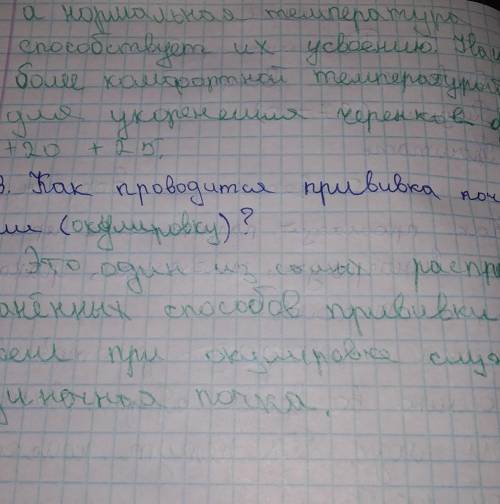 а нормальная температура
способствует их усвоению. Наи
более комфортной температурой
для укоренения черенков
+20 +25.
3. Как проводится прививка поч
(окулировку)?
Это один из самых распр
анённых способов прививки
при окулировке слу
диночная почка.